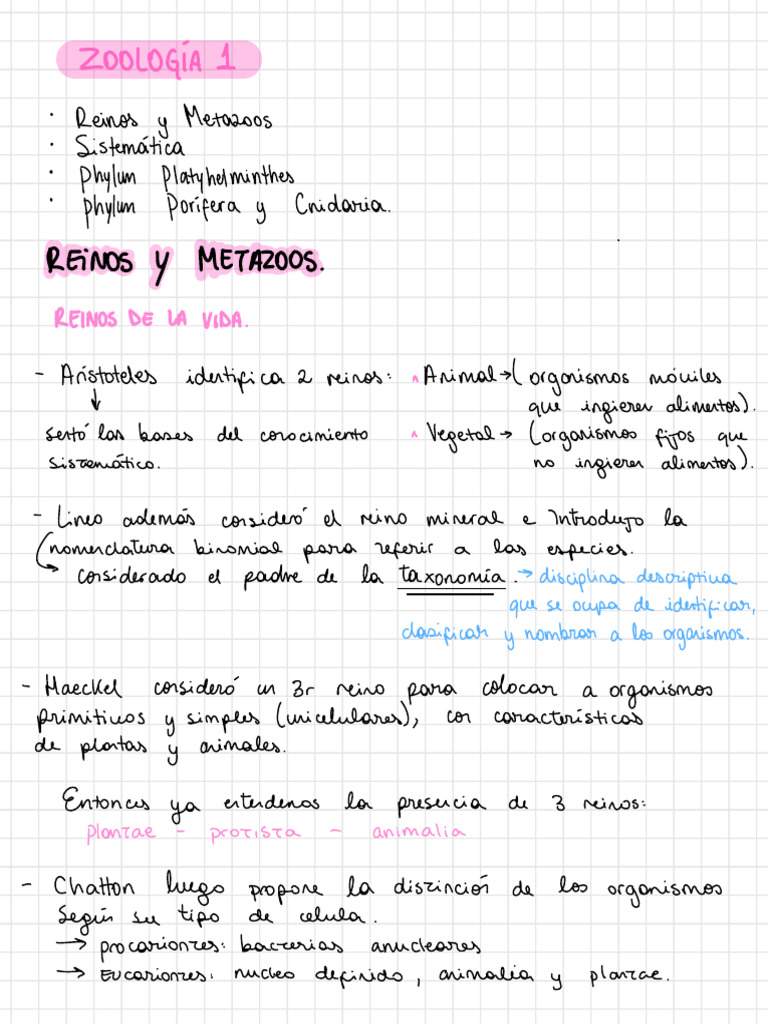 ZOOLOGÍA 1
· Reinos y Metazoos
· Sistemática
· Phylum Platyhelminthes
· Phylum Porífera y Cnidaria.
REINOS Y METAZOOS.
REINOS DE LA VIDA.
- Aristoteles identifica 2 reinos: ^ Animal → (organismos móviles
que ingieren alimentos).
↓
sentó las bases del conocimiento ^ Vegetal → (organismos fijos que
sistemático. no ingieren alimentos).
- Lineo además consideró el reino mineral e introdujo la
nomenclatura binomial para referir a las especies.
→ considerado el padre de la taxonomía. → disciplina descriptiva
que se ocupa de identificar,
clasificar y nombrar a los organismos.
- Haeckel consideró un 3r reino para colocar a organismos
primitivos y simples (unicelulares), con características
de plantas y animales.
Entonces ya entendemos la presencia de 3 reinos:
plantae - protista - animalia
- Chatton luego propone la distinción de los organismos
según su tipo de celula.
→ procariontes: bacterias anucleares
→ Eucariontes: nucleo definido, animalia y plantae.